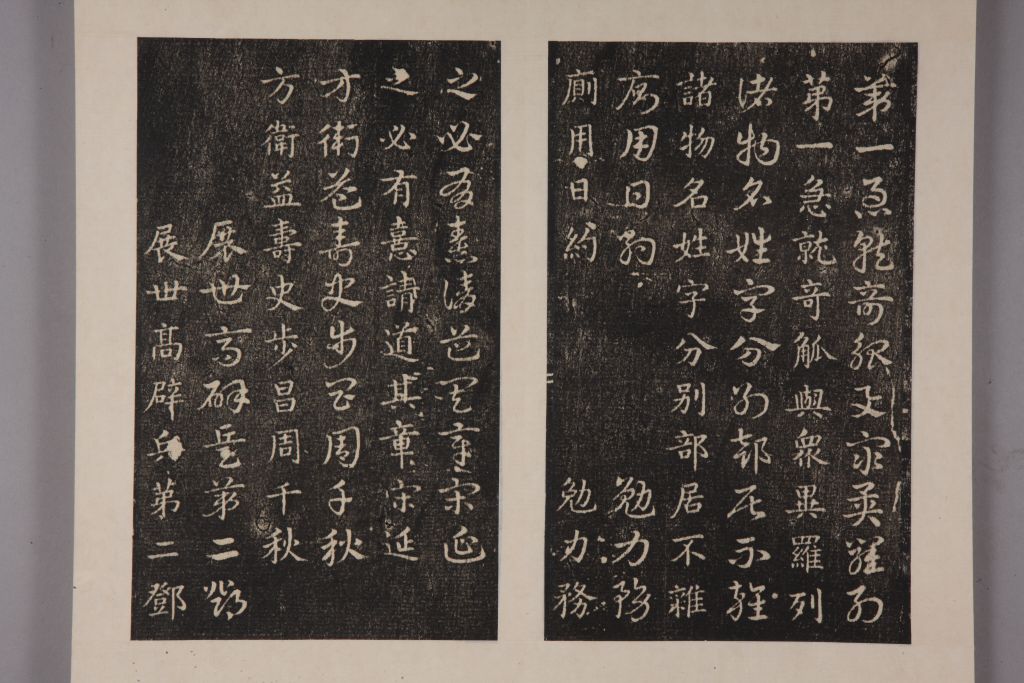 第一急就奇觚與衆異羅列
第一急就奇觚與衆異羅列
諸物名姓字分別部居不雜
諸物名姓字分別部居不雜
廁用日約　勉力務
廁用日約　勉力務
之必有憙請道其章宋延
之必有憙請道其章宋延
方衛益壽史步昌周千秋
方衛益壽史步昌周千秋
展世高辟兵第二鄧
展世高辟兵第二鄧